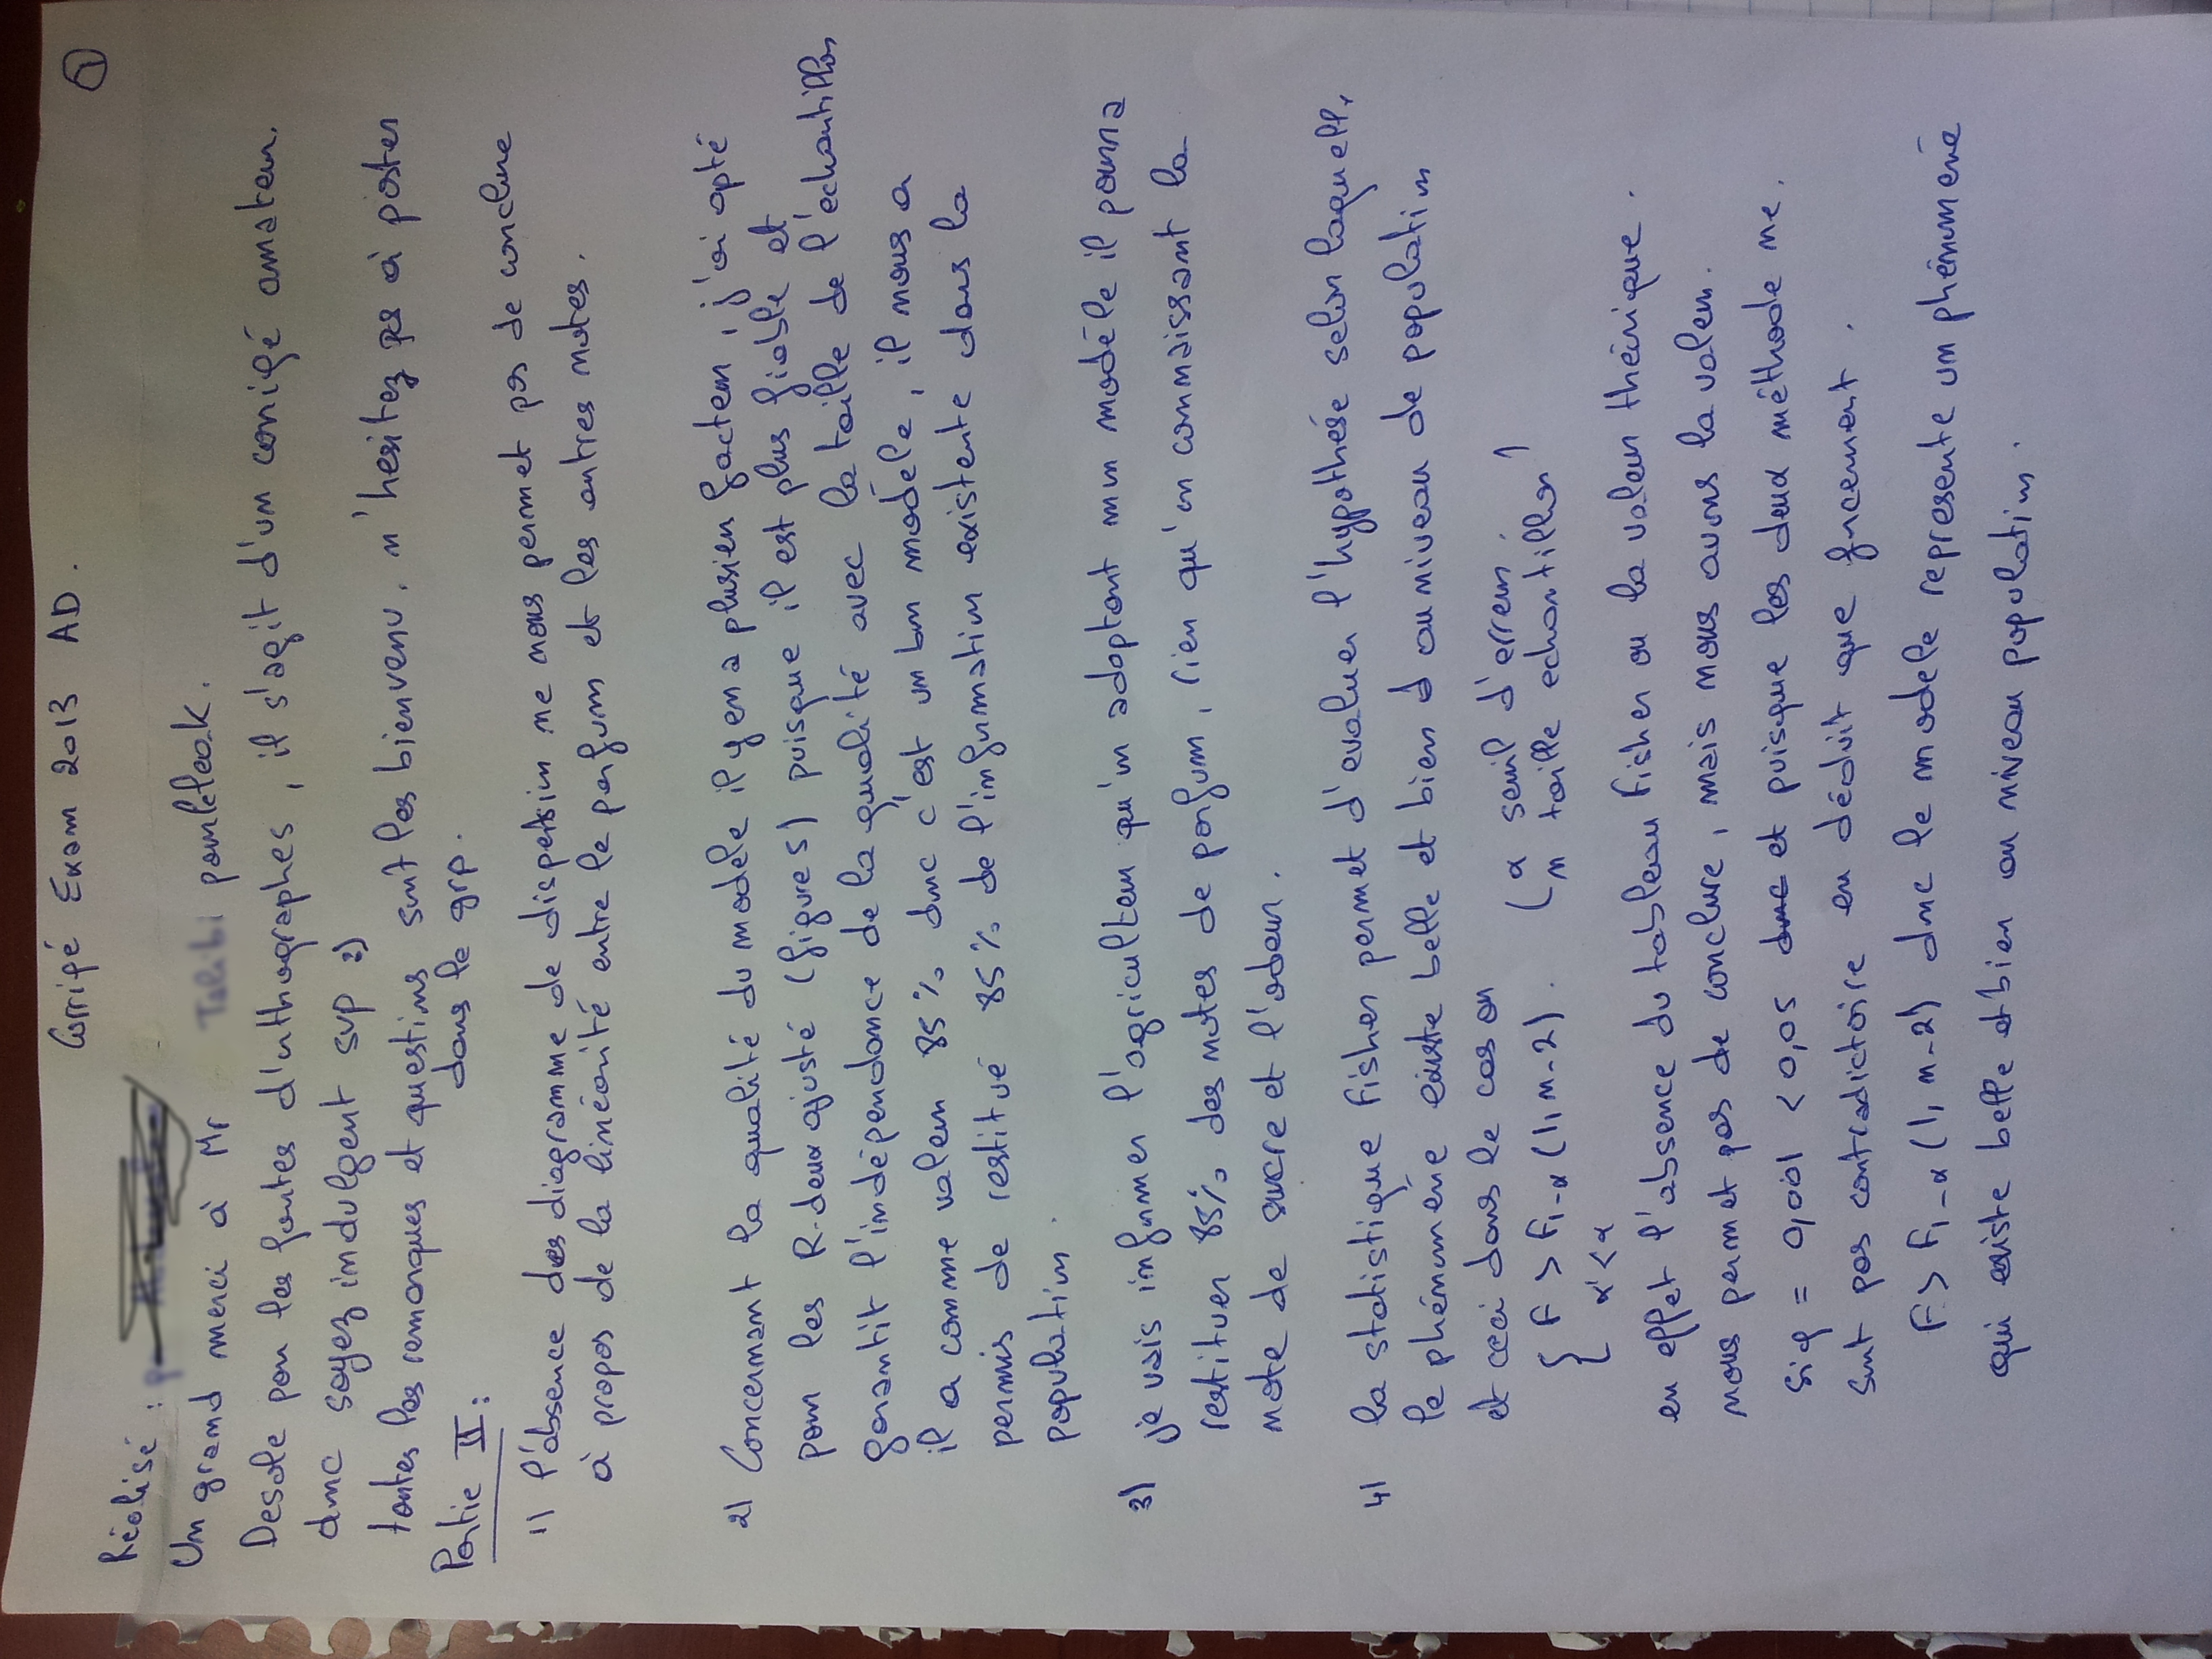 ①
Corrigé Exam 2013 AD.
Réalisé :
Un grand merci à Mr Talibi pour le leak.
Desole pour les fautes d'orthographes, il s'agit d'un corrigé amateur.
donc soyez indulgent svp
toutes les remarques et questions sont les bienvenu, n'hesitez pas à poster
dans le grp.
Partie II :
1) l'absence des diagramme de dispersion ne nous permet pas de conclure
à propos de la linéarité entre le parfum et les autres notes.
2) Concernant la qualité du modèle il y en a plusieur facteur, j'ai opté
pour les R-deux ajusté (figure 5) puisque il est plus fiable et
garantit l'indépendance de la qualité avec la taille de l'échantillon
il a comme valeur 85% donc c'est un bon modèle, il nous a
permis de restitué 85% de l'information existente dans la
population.
3) je vais informer l'agriculteur qu'en adoptant mon modèle il pourra
restituer 85% des notes de parfum, rien qu'en connaissant la
note de sucre et l'odeur.
4) la statistique Fisher permet d'evaluer l'hypothése selon laquelle
le phénomène existe belle et bien d au niveau de population
et ceci dans le cas on
{ F > F1-α (1, n-2). ( α seuil d'erreur.
α' < α n taille echantillon )
en effet l'absence du tableau Fisher ou la valeur théorique.
nous permet pas de conclure, mais nous avons la valeur.
sig = 0,001 < 0,05 donc et puisque les deux méthode ne.
sont pas contradictoire en déduit que forcement.
F > F1-α (1, n-2) donc le modele represente un phénomené
qui existe belle et bien au niveau population.